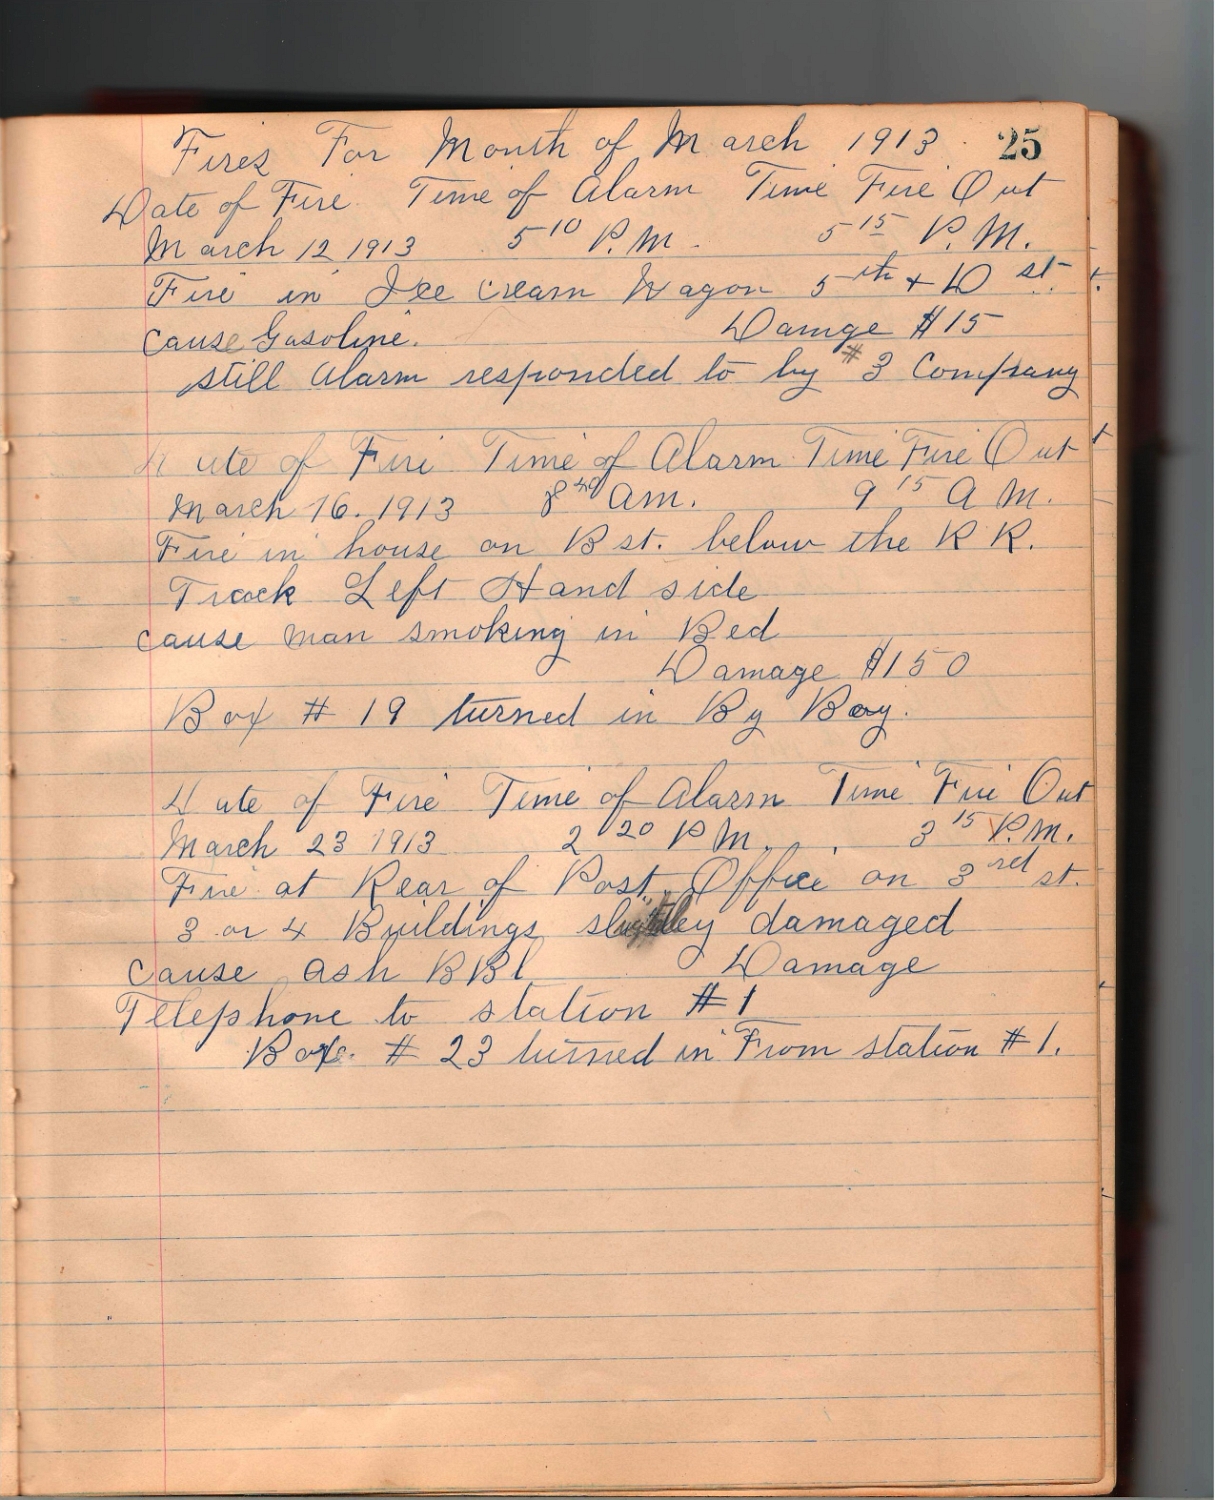 Fires For Month of March 1913 25
Date of Fire Time of Alarm Time Fire Out
March 12 1913 5 10 P.M. 5 15 P.M.
Fire in Ice cream Wagon 5 th + D st.
Cause Gasoline. Damge $15
still Alarm responded to by # 3 Company
Date of Fire Time of Alarm Time Fire Out
March 16. 1913 8 40 am. 9 15 A M.
Fire in house on B st. below the R R.
Track Left Hand side
cause man smoking in Bed
Damage $150
Box # 19 turned in By Boy.
Date of Fire Time of Alarm Time Fire Out
March 23 1913 2 20 P M. 3 15 P.M.
Fire at Rear of Post Office on 3 rd st.
3 or 4 Buildings damaged
Cause ash BBl Damage
Telephone to station # 1
Box # 23 turned in From station # 1.